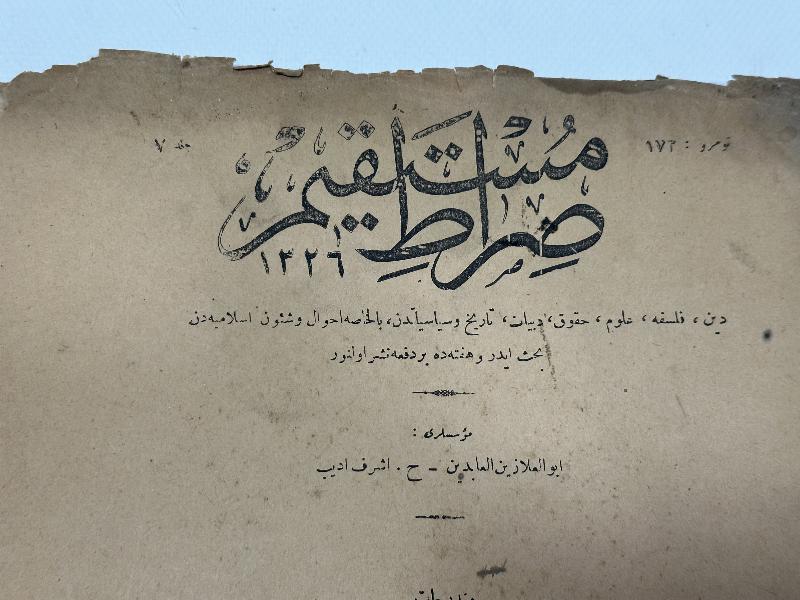 نومرو : ١٧٢
جلد ٧
صِرَاطِ مُسْتَقِيم
١٣٢٦
دين ، فلسفه ، علوم ، حقوق ، ادبيات ، تاريخ وسياسياتدن ، بالخاصه احوال وشئون اسلاميه‌دن
بحث ايدر وهفته‌ده بر دفعه نشر اولنور
مؤسسلرى :
ابوالعلا زين العابدين ـ ح . اشرف اديب